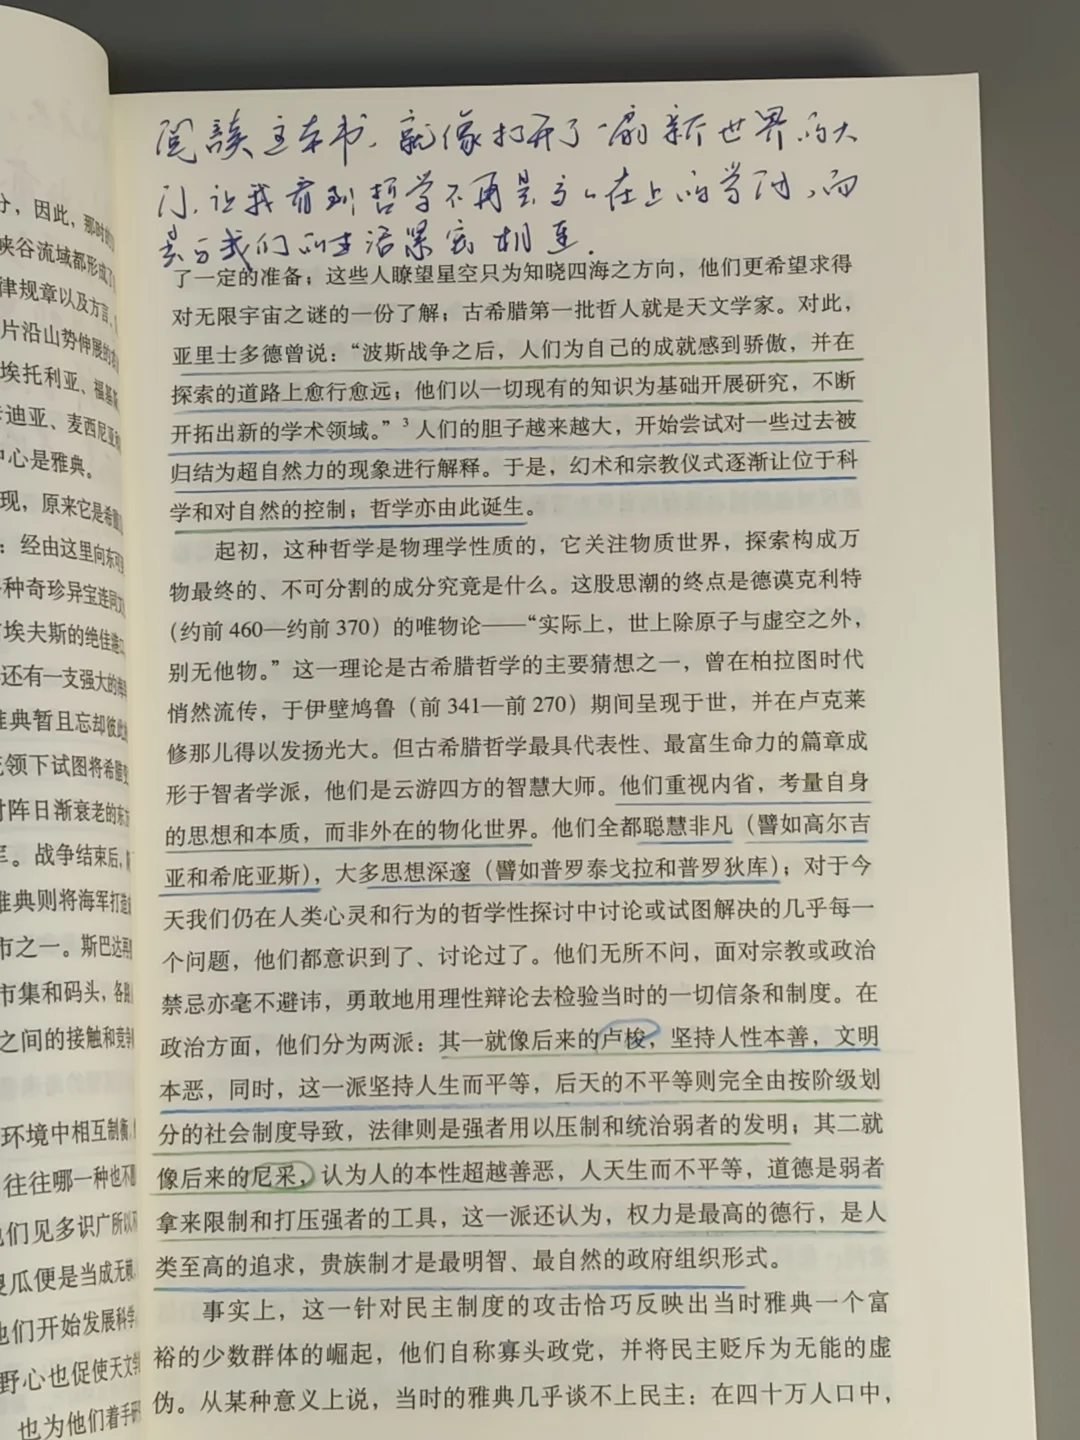 阅读这本书，就像打开了一扇新世界的大
门，让我看到哲学不再是高高在上的学问，而
是与我们的生活紧密相连．
了一定的准备；这些人瞭望星空只为知晓四海之方向，他们更希望求得
对无限宇宙之谜的一份了解；古希腊第一批哲人就是天文学家。对此，
亚里士多德曾说：“波斯战争之后，人们为自己的成就感到骄傲，并在
探索的道路上愈行愈远；他们以一切现有的知识为基础开展研究，不断
开拓出新的学术领域。”3 人们的胆子越来越大，开始尝试对一些过去被
归结为超自然力的现象进行解释。于是，幻术和宗教仪式逐渐让位于科
学和对自然的控制；哲学亦由此诞生。
起初，这种哲学是物理学性质的，它关注物质世界，探索构成万
物最终的、不可分割的成分究竟是什么。这股思潮的终点是德谟克利特
（约前 460—约前 370）的唯物论——“实际上，世上除原子与虚空之外，
别无他物。”这一理论是古希腊哲学的主要猜想之一，曾在柏拉图时代
悄然流传，于伊壁鸠鲁（前 341—前 270）期间呈现于世，并在卢克莱
修那儿得以发扬光大。但古希腊哲学最具代表性、最富生命力的篇章成
形于智者学派，他们是云游四方的智慧大师。他们重视内省，考量自身
的思想和本质，而非外在的物化世界。他们全都聪慧非凡（譬如高尔吉
亚和希庇亚斯），大多思想深邃（譬如普罗泰戈拉和普罗狄库）；对于今
天我们仍在人类心灵和行为的哲学性探讨中讨论或试图解决的几乎每一
个问题，他们都意识到了、讨论过了。他们无所不问，面对宗教或政治
禁忌亦毫不避讳，勇敢地用理性辩论去检验当时的一切信条和制度。在
政治方面，他们分为两派：其一就像后来的卢梭，坚持人性本善，文明
本恶，同时，这一派坚持人生而平等，后天的不平等则完全由按阶级划
分的社会制度导致，法律则是强者用以压制和统治弱者的发明；其二就
像后来的尼采，认为人的本性超越善恶，人天生而不平等，道德是弱者
拿来限制和打压强者的工具，这一派还认为，权力是最高的德行，是人
类至高的追求，贵族制才是最明智、最自然的政府组织形式。
事实上，这一针对民主制度的攻击恰巧反映出当时雅典一个富
裕的少数群体的崛起，他们自称寡头政党，并将民主贬斥为无能的虚
伪。从某种意义上说，当时的雅典几乎谈不上民主：在四十万人口中，
分，因此，那时的
峡谷流域都形成了
律规章以及方言，
片沿山势伸展的
埃托利亚、福基
迪亚、麦西尼亚
中心是雅典。
现，原来它是希腊
：经由这里向东可
种奇珍异宝连同文
埃夫斯的绝佳港口
还有一支强大的
雅典暂且忘却彼此
领下试图将希腊
对阵日渐衰老的东方
军。战争结束后，
雅典则将海军打造
市之一。斯巴达
市集和码头，各
之间的接触和竞争
环境中相互制衡，
往往哪一种也不
他们见多识广所以
傻瓜便是当成无赖
他们开始发展科学
野心也促使天文学
也为他们着手研